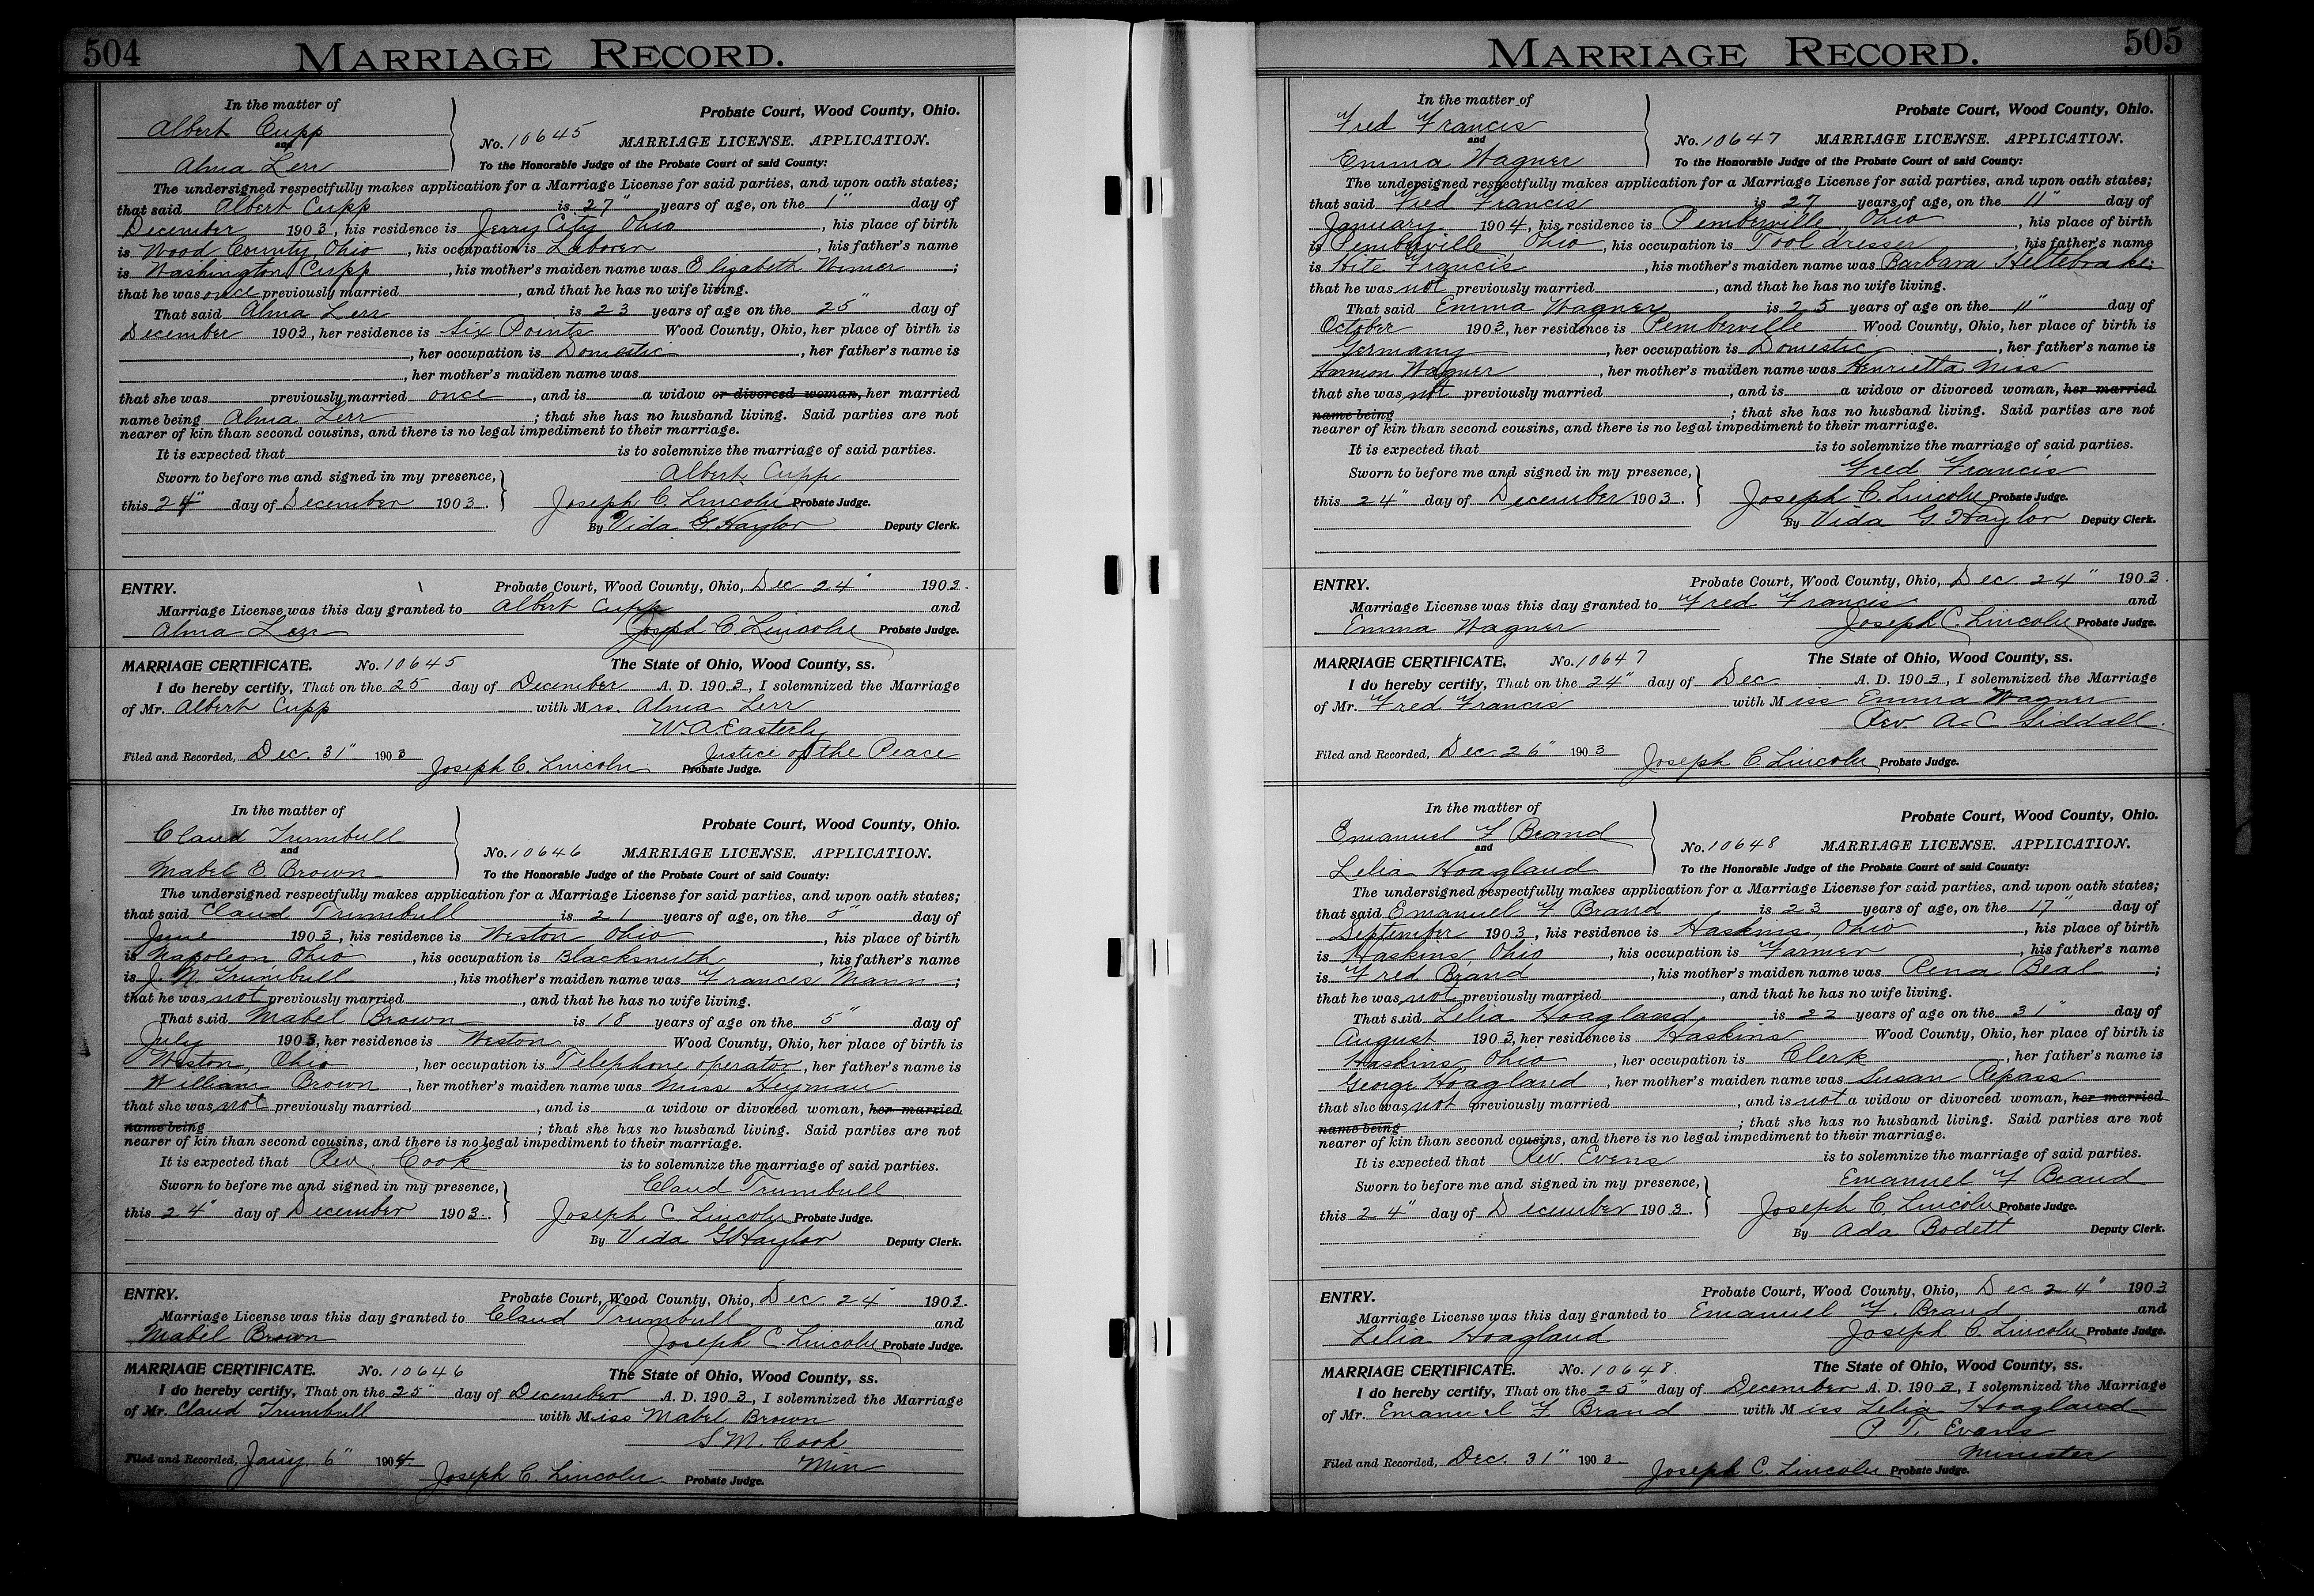 504 MARRIAGE RECORD.
In the matter of
Albert Cupp
and
Alma Lerr
Probate Court, Wood County, Ohio.
No. 10645 MARRIAGE LICENSE. APPLICATION.
To the Honorable Judge of the Probate Court of said County:
The undersigned respectfully makes application for a Marriage License for said parties, and upon oath states;
that said Albert Cupp is 27" years of age, on the 1" day of
December 1903, his residence is Jerry City Ohio, his place of birth
is Wood County, Ohio, his occupation is Laborer, his father's name
is Washington Cupp, his mother's maiden name was Elizabeth;
that he was once previously married, and that he has no wife living.
That said Alma Lerr is 23 years of age on the 25" day of
December 1903, her residence is Six Points Wood County, Ohio, her place of birth is
, her occupation is Domestic, her father's name is
, her mother's maiden name was
that she was previously married once, and is a widow or divorced woman, her married
name being Alma Lerr; that she has no husband living. Said parties are not
nearer of kin than second cousins, and there is no legal impediment to their marriage.
It is expected that is to solemnize the marriage of said parties.
Sworn to before me and signed in my presence,
this 24" day of December 1903.
Albert Cupp
Joseph C. Lincoln Probate Judge.
By Vida G. Haylor Deputy Clerk.
ENTRY. Probate Court, Wood County, Ohio, Dec 24" 1903.
Marriage License was this day granted to Albert Cupp and
Alma Lerr Joseph C. Lincoln Probate Judge.
MARRIAGE CERTIFICATE. No. 10645 The State of Ohio, Wood County, ss.
I do hereby certify, That on the 25 day of December A. D. 1903, I solemnized the Marriage
of Mr. Albert Cupp with Mrs. Alma Lerr
W. A. Easterly
Justice of the Peace
Filed and Recorded, Dec. 31" 1903
Joseph C. Lincoln Probate Judge.
In the matter of
Claud Trumbull
and
Mabel E. Brown
Probate Court, Wood County, Ohio.
No. 10646 MARRIAGE LICENSE. APPLICATION.
To the Honorable Judge of the Probate Court of said County:
The undersigned respectfully makes application for a Marriage License for said parties, and upon oath states;
that said Claud Trumbull is 21 years of age, on the 5" day of
June 1903, his residence is Weston Ohio, his place of birth
is Napoleon Ohio, his occupation is Blacksmith, his father's name
is J. N. Trumbull, his mother's maiden name was Frances Mann;
that he was not previously married, and that he has no wife living.
That said Mabel Brown is 18 years of age on the 5" day of
July 1903, her residence is Weston Wood County, Ohio, her place of birth is
Weston, Ohio, her occupation is Telephone operator, her father's name is
William Brown, her mother's maiden name was Miss Heyman
that she was not previously married, and is a widow or divorced woman, her married
name being; that she has no husband living. Said parties are not
nearer of kin than second cousins, and there is no legal impediment to their marriage.
It is expected that Rev. Cook is to solemnize the marriage of said parties.
Sworn to before me and signed in my presence,
this 24" day of December 1903.
Claud Trumbull
Joseph C. Lincoln Probate Judge.
By Vida G Haylor Deputy Clerk.
ENTRY. Probate Court, Wood County, Ohio, Dec. 24" 1903.
Marriage License was this day granted to Claud Trumbull and
Mabel Brown Joseph C. Lincoln Probate Judge.
MARRIAGE CERTIFICATE. No. 10646 The State of Ohio, Wood County, ss.
I do hereby certify, That on the 25" day of December A. D. 1903, I solemnized the Marriage
of Mr. Claud Trumbull with Miss Mabel Brown
S. M. Cook
Min
Filed and Recorded, Jany 6" 1904.
Joseph C. Lincoln Probate Judge.
MARRIAGE RECORD. 505
In the matter of
Fred Francis
and
Emma Wagner
Probate Court, Wood County, Ohio.
No. 10647 MARRIAGE LICENSE. APPLICATION.
To the Honorable Judge of the Probate Court of said County:
The undersigned respectfully makes application for a Marriage License for said parties, and upon oath states;
that said Fred Francis is 27 years of age, on the 11" day of
January 1904, his residence is Pemberville, Ohio, his place of birth
is Pemberville Ohio, his occupation is Tool dresser, his father's name
is Hite Francis, his mother's maiden name was Barbara Heltebrake;
that he was not previously married, and that he has no wife living.
That said Emma Wagner is 25 years of age on the 11" day of
October 1903, her residence is Pemberville Wood County, Ohio, her place of birth is
Germany, her occupation is Domestic, her father's name is
Harmon Wagner, her mother's maiden name was Henrietta Niss
that she was not previously married, and is a widow or divorced woman, her married
name being; that she has no husband living. Said parties are not
nearer of kin than second cousins, and there is no legal impediment to their marriage.
It is expected that is to solemnize the marriage of said parties.
Sworn to before me and signed in my presence,
this 24" day of December 1903.
Fred Francis
Joseph C. Lincoln Probate Judge.
By Vida G. Haylor Deputy Clerk.
ENTRY. Probate Court, Wood County, Ohio, Dec 24" 1903.
Marriage License was this day granted to Fred Francis and
Emma Wagner Joseph C. Lincoln Probate Judge.
MARRIAGE CERTIFICATE. No. 10647 The State of Ohio, Wood County, ss.
I do hereby certify, That on the 24" day of Dec A. D. 1903, I solemnized the Marriage
of Mr. Fred Francis with Miss Emma Wagner
Rev A. C. Siddall.
Filed and Recorded, Dec. 26" 1903
Joseph C. Lincoln Probate Judge.
In the matter of
Emanuel F Brand
and
Lelia Hoagland
Probate Court, Wood County, Ohio.
No. 10648 MARRIAGE LICENSE. APPLICATION.
To the Honorable Judge of the Probate Court of said County:
The undersigned respectfully makes application for a Marriage License for said parties, and upon oath states;
that said Emanuel F. Brand is 23 years of age, on the 17" day of
September 1903, his residence is Haskins, Ohio, his place of birth
is Haskins, Ohio, his occupation is Farmer, his father's name
is Fred Brand, his mother's maiden name was Rena Beal;
that he was not previously married, and that he has no wife living.
That said Lelia Hoagland is 22 years of age on the 31" day of
August 1903, her residence is Haskins Wood County, Ohio, her place of birth is
Haskins, Ohio, her occupation is Clerk, her father's name is
George Hoagland, her mother's maiden name was Susan Repass
that she was not previously married, and is not a widow or divorced woman, her married
name being; that she has no husband living. Said parties are not
nearer of kin than second cousins, and there is no legal impediment to their marriage.
It is expected that Rev. Evens is to solemnize the marriage of said parties.
Sworn to before me and signed in my presence,
this 24" day of December 1903.
Emanuel F Brand
Joseph C. Lincoln Probate Judge.
By Ada Bodett Deputy Clerk.
ENTRY. Probate Court, Wood County, Ohio, Dec 24" 1903
Marriage License was this day granted to Emanuel F. Brand and
Lelia Hoagland Joseph C. Lincoln Probate Judge.
MARRIAGE CERTIFICATE. No. 10648. The State of Ohio, Wood County, ss.
I do hereby certify, That on the 25" day of December A. D. 1903, I solemnized the Marriage
of Mr. Emanuel F. Brand with Miss Lelia Hoagland
P. T. Evans
Minister
Filed and Recorded, Dec. 31" 1903.
Joseph C. Lincoln Probate Judge.